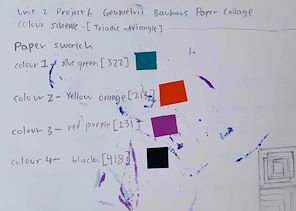 Unit 2 Project 6 Geometric Bauhaus Paper Collage
Colour scheme - [Triadic - triangle]
Paper swatch
colour 1 - Blue green [322]
colour 2 - Yellow orange [213]
colour 3 - red purple [231]
colour 4 - black [418]